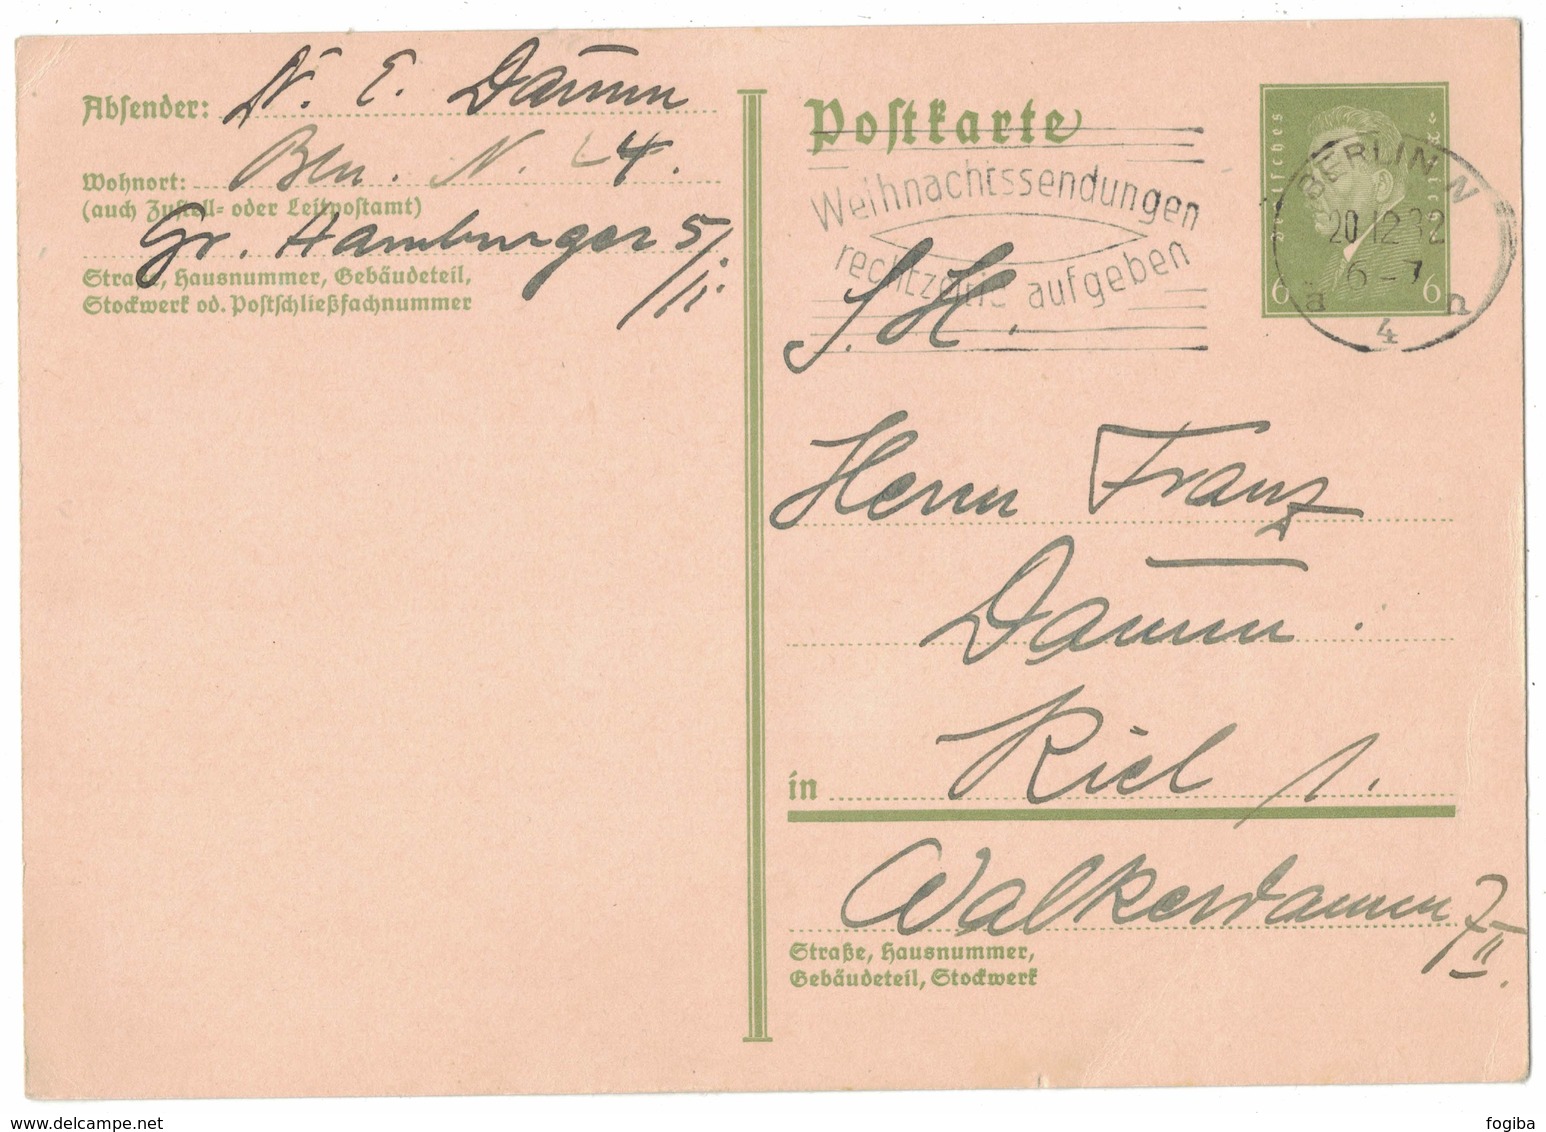 Absender: N. E. Damm
Wohnort: Bln. N. 24.
(auch Zustell- oder Leitpostamt)
Gr. Hamburger 5/II.
Straße, Hausnummer, Gebäudeteil,
Stockwerk od. Postschließfachnummer
Postkarte
Weihnachtssendungen
rechtzeitig aufgeben
Deutsches Reich
6 6
BERLIN N
20.12.32
6-7
a 4 n
S. H.
Herrn Franz
Damm.
in Kiel 1.
Walkerdamm 7 II.
Straße, Hausnummer,
Gebäudeteil, Stockwerk
delcampe.net
fogiba